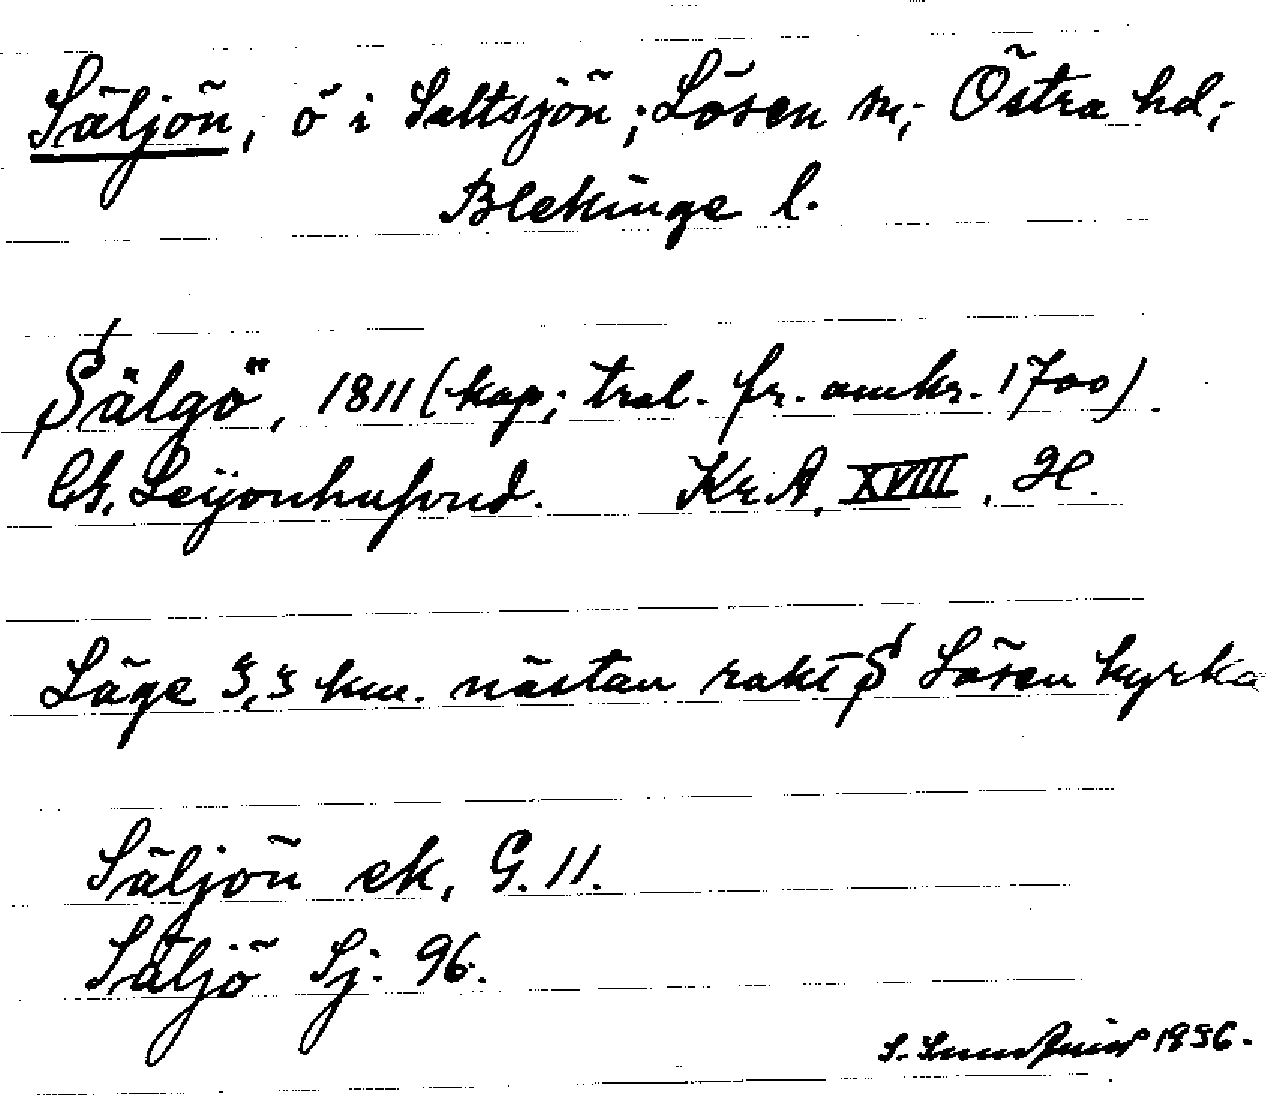 Säljön, ö i Saltsjön; Lösen sn; Östra hd;
Blekinge l.
Sälgö, 1811 (kop; trol. fr. omkr. 1700)
Ch. Leijonhufvud. Kr.A. XVIII, H.
Läge 3,3 km. nästan rakt S Lösen kyrka
Säljön ek, G. 11.
Säljö Sj. 96.
1936.